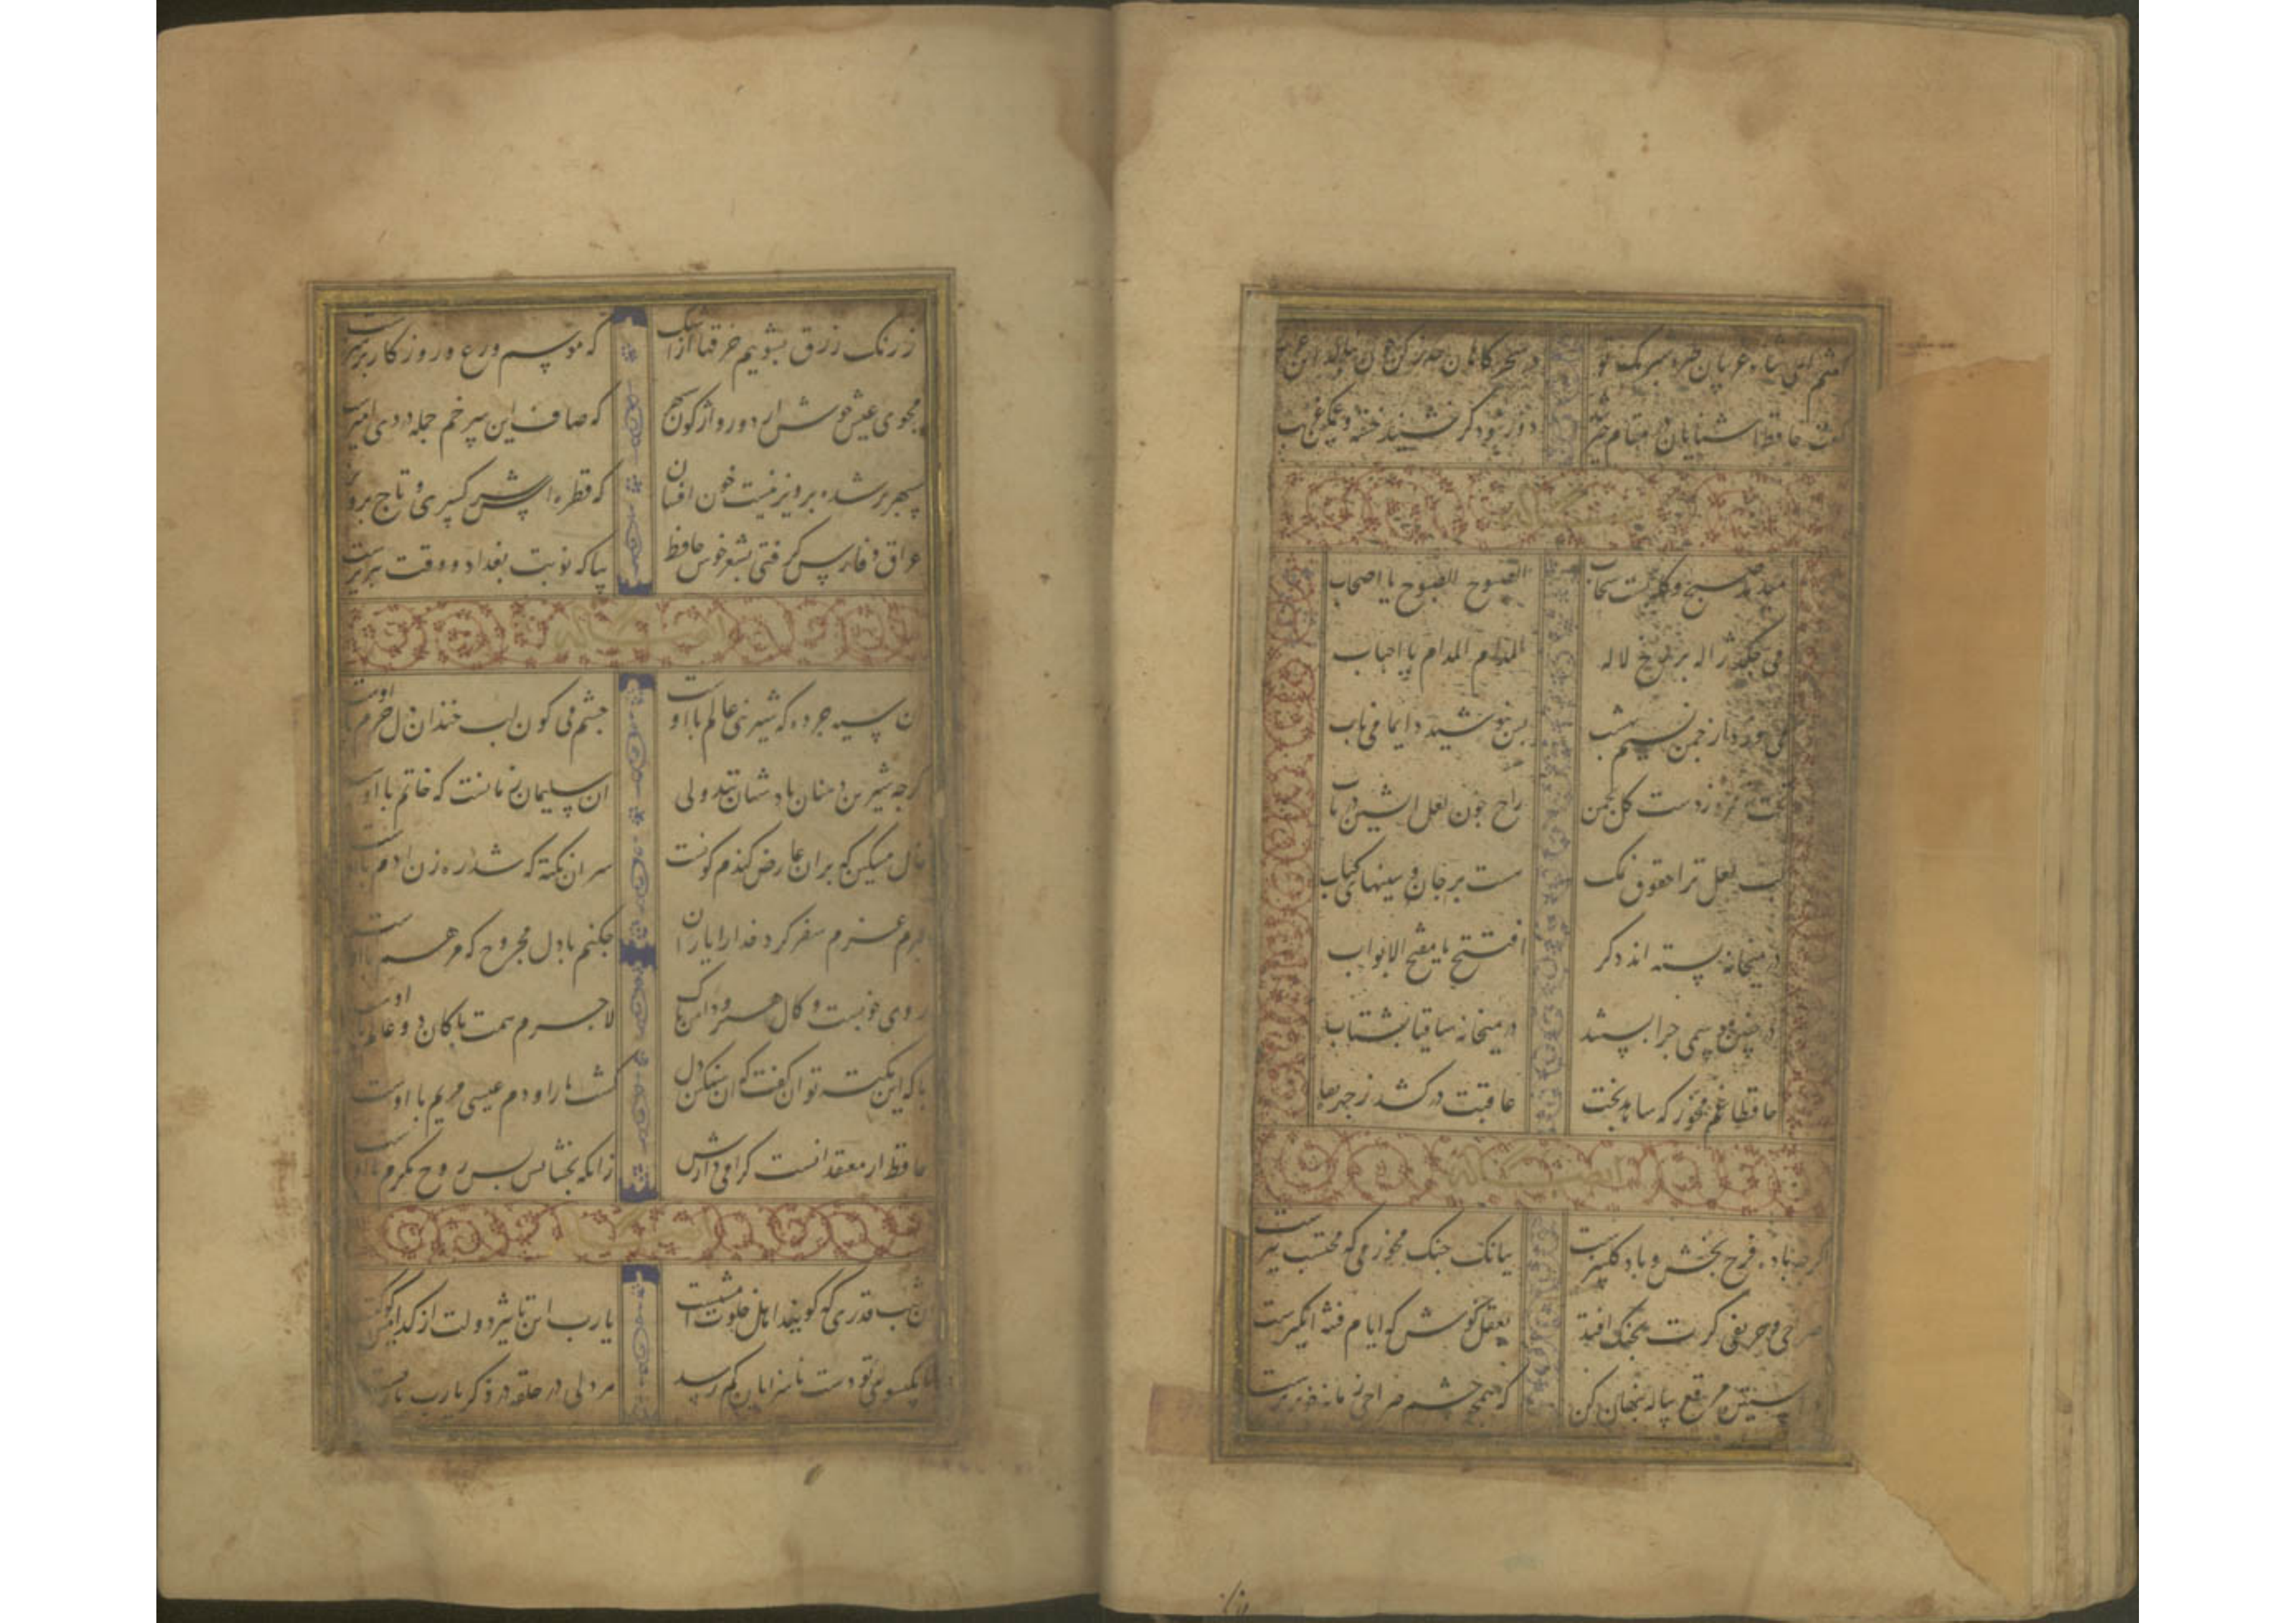 گفتم ای شام غریبان طره شبرنگ تو در سحرگاهان حذر کن چون بنالد این غریب
گفت حافظ اشنایان در مقام حیرتند دور نبود گر نشیند خسته و غمگین غریب
میدمد صبح و کله بست سحاب الصبوح الصبوح یا اصحاب
می چکد ژاله بر رخ لاله المدام المدام یا احباب
می وزد از چمن نسیم بهشت بنوشید دایما می ناب
تخت زمرد زدست کل بچمن راح چون لعل اتشین دریاب
لب لعل ترا حقوق نمک هست بر جان و سینهای کباب
در میخانه بسته اند دکر افتتح یا مفتح الابواب
در چنین موسمی چرا بستند در میخانه ساقیا بشتاب
حافظا غم مخور که شاهد بخت عاقبت درکشد ز چهره نقاب
کرچه باده فرح بخش و باد کلبیزست ببانک چنک مخور می که محتسب تیزست
صراحی و حریفی کرت بچنک افتد بعقل نوش که ایام فتنه انکیزست
در استین مرقع پیاله پنهان کن که همچو چشم صراحی زمانه خونریزست
ز رنک زرق بشوییم خرقها از اشک که موسم ورع و روزکار پرهیزست
مجوی عیش خوش از دور واژکون سپهر که صاف این سر خم جمله دردی امیزست
سپهر بر شده پرویزنیست خون افشان که قطره اش سر کسری و تاج پرویزست
عراق و فارس کرفتی بشعر خوش حافظ بیا که نوبت بغداد و وقت تبریزست
ان سیه چرده که شیرینی عالم با اوست چشم می کون لب خندان دل خرم با اوست
کرچه شیرین دهنان پادشهانند ولی ان سلیمان زمانست که خاتم با اوست
خال مشکین که بران عارض کندم کونست سر ان نکته که شد ره زن ادم با اوست
دلبرم عزم سفر کرد خدا را یاران چکنم با دل مجروح که مرهم با اوست
روی خوبست و کمال هنر و دامن پاک لاجرم همت پاکان دو عالم با اوست
با که این نکته توان کفت که ان سنکین دل کشت ما را و دم عیسی مریم با اوست
حافظ از معتقدانست کرامی دارش زانکه بخشایش بس روح مکرم با اوست
ان شب قدری که کویند اهل خلوت امشبست یارب این تاثیر دولت از کدامین کوکبست
تا بکیسوی تو دست ناسزایان کم رسد هر دلی در حلقه در ذکر یارب یاربست